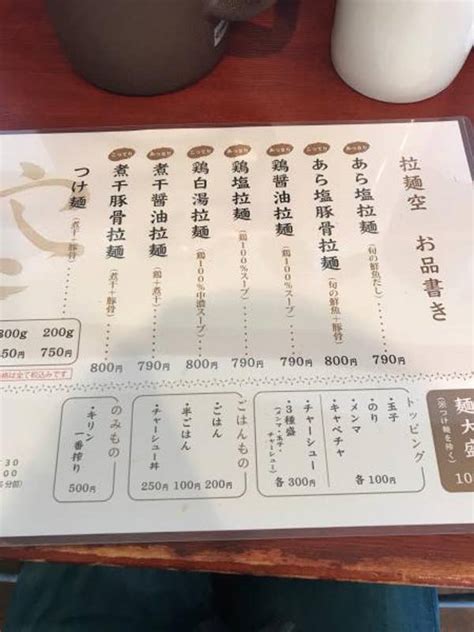 拉麺空 お品書き
あっさり
あら塩拉麺（旬の鮮魚だし）
790円
こってり
あら塩豚骨拉麺（旬の鮮魚＋豚骨）
800円
あっさり
鶏醤油拉麺（鶏100％スープ）
790円
あっさり
鶏塩拉麺（鶏100％スープ）
790円
こってり
鶏白湯拉麺（鶏100％中濃スープ）
800円
あっさり
煮干醤油拉麺（鶏＋煮干）
790円
こってり
煮干豚骨拉麺（煮干＋豚骨）
800円
つけ麺（煮干＋豚骨）
200g
750円
300g
格は全て税込みです
麺大盛
（※つけ麺を除く）
10
トッピング
・玉子
・のり
・メンマ
・キャベチャ
各100円
・チャーシュー
・3種盛
（メンマ・玉子・チャーシュー）
各300円
ごはんもの
・ごはん
200円
・半ごはん
100円
・チャーシュー丼
250円
のみもの
・キリン一番搾り
500円